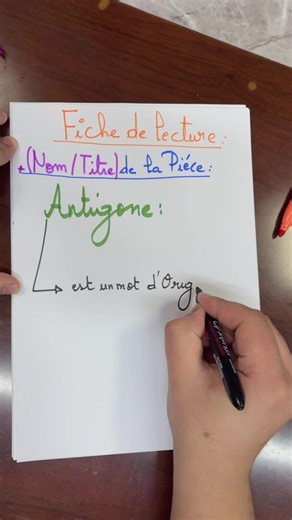 Fiche de lecture :
+(Nom/Titre) de la Pièce :
Antigone :
est un mot d'Orig